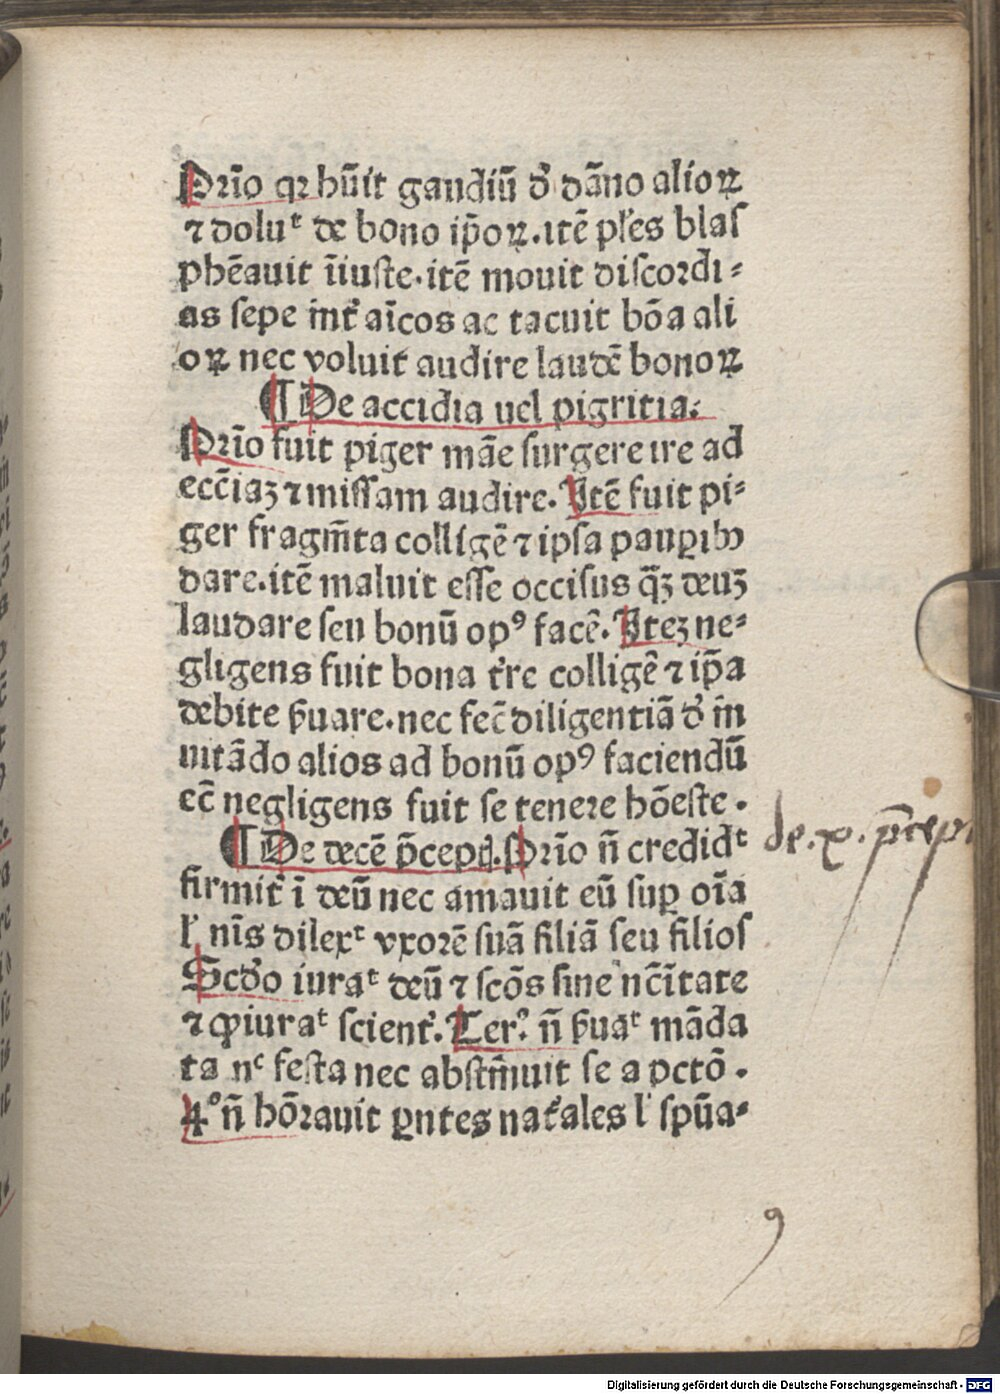 Prīo qꝛ hūit gaudiū ꝺ̄ dāno alioꝝ
⁊ doluᵗ de bono ip̄oꝝ. itē pľes blaſ
phēauit īiuſte. itē mouit diſcordi⸗
as ſepe int̄ aīcos ac tacuit bōa ali
oꝝ nec voluit audire laudē bonoꝝ
¶ De accidia uel pigritia.
Prīo fuit piger māe ſurgere ire ad
ecc̄iaꝫ ⁊ miſſam audire. Itē fuit pi⸗
ger fragm̄ta colligē ⁊ ipſa paupꝑibꝫ
dare. itē maluit eſſe occiſus q̄ꝫ deuꝫ
laudare ſeu bonū opꝰ facē. Iteꝫ ne⸗
gligens fuit bona t̄re colligē ⁊ ip̄a
debite ẜuare. nec fec̄ diligentiā ꝺ̄ in
uitādo alios ad bonū opꝰ faciendū
ec̄ negligens fuit ſe tenere hōeſte.
¶ De decē p̄cepꝭ. Prīo n̄ credidᵗ
firmit̄ ī deū nec amauit eū ſuꝑ oīa
ľ nīs dilexᵗ vxorē ſuā filiā ſeu filios
Scd̄o iuraᵗ deū ⁊ ſcōs ſine nc̄itate
⁊ ꝑiuraᵗ ſcient̄. Terº n̄ ẜuaᵗ māda
ta nᶜ feſta nec abſtīnuit ſe a pctō.
4º n̄ hōrauit ꝑntes nat̄ales ľ ſpūa⸗
de .x. p̄cep
9
Digitalisierung gefördert durch die Deutsche Forschungsgemeinschaft - DFG